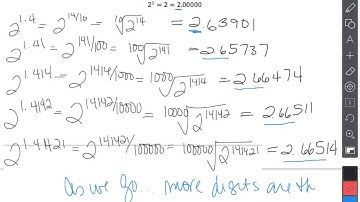 2¹ = 2 = 2.00000
2^1.4 = 2^14/10 = ¹⁰√2^14 = 2.63901
2^1.41 = 2^141/100 = ¹⁰⁰√2^141 = 2.65737
2^1.414 = 2^1414/1000 = ¹⁰⁰⁰√2^1414 = 2.66474
2^1.4142 = 2^14142/10000 = ¹⁰⁰⁰⁰√2^14142 = 2.66511
2^1.41421 = 2^141421/100000 = ¹⁰⁰⁰⁰⁰√2^141421 = 2.66514
As we go... more digits are th